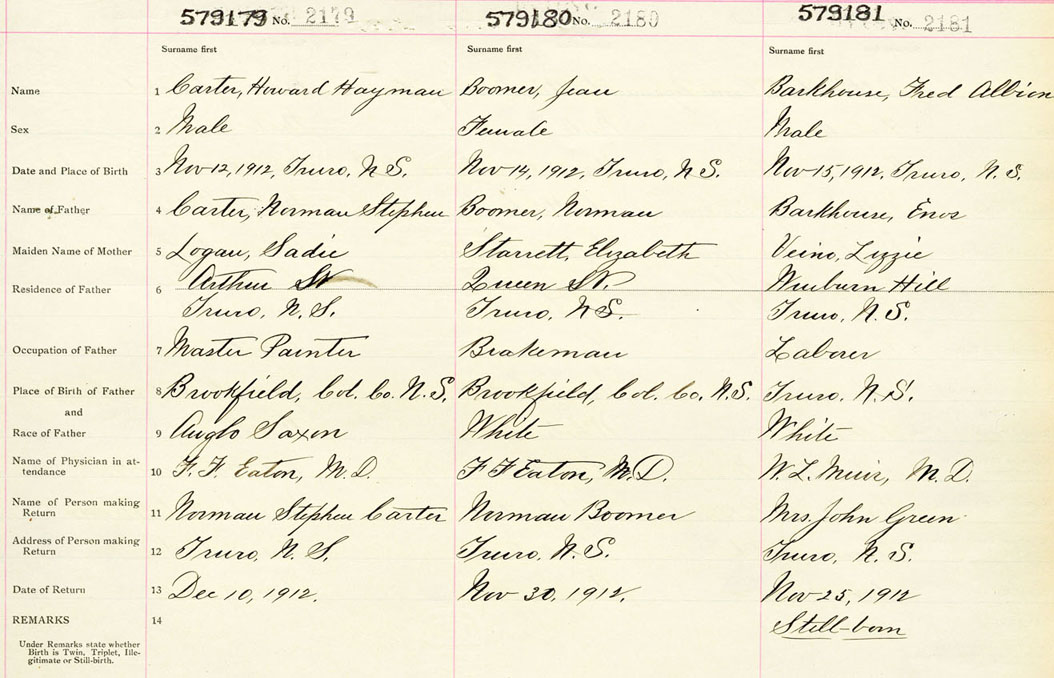 579179 No. 2179 579180 No. 2180 579181 No. 2181
Surname first Surname first Surname first
Name 1 Carter, Howard Hayman Boomer, Jean Barkhouse, Fred Albion
Sex 2 Male Female Male
Date and Place of Birth 3 Nov 12, 1912, Truro, N S. Nov 14, 1912, Truro, N S. Nov 15, 1912, Truro, N. S.
Name of Father 4 Carter, Norman Stephen Boomer, Norman Barkhouse, Enos
Maiden Name of Mother 5 Logan, Sadie Starrett, Elizabeth Veino, Lizzie
Arthur St Queen St. Wimburn Hill
Residence of Father 6
Truro, N. S. Truro, N S. Truro, N. S.
Occupation of Father 7 Master Painter Brakeman Laborer
Place of Birth of Father 8 Brookfield, Col. Co. N. S. Brookfield, Col. Co, N. S. Truro, N. S.
and
Race of Father 9 Anglo Saxon White White
Name of Physician in at-
tendance 10 F. F. Eaton, M. D. F F Eaton, M. D. W. L. Muir, M. D.
Name of Person making
Return 11 Norman Stephen Carter Norman Boomer Mrs. John Green
Address of Person making
Return 12 Truro, N. S. Truro, N. S. Truro, N. S.
Date of Return 13 Dec 10, 1912. Nov 30, 1912. Nov 25, 1912
REMARKS 14 Still-born
Under Remarks state whether
Birth is Twin, Triplet, Ille-
gitimate or Still-birth.